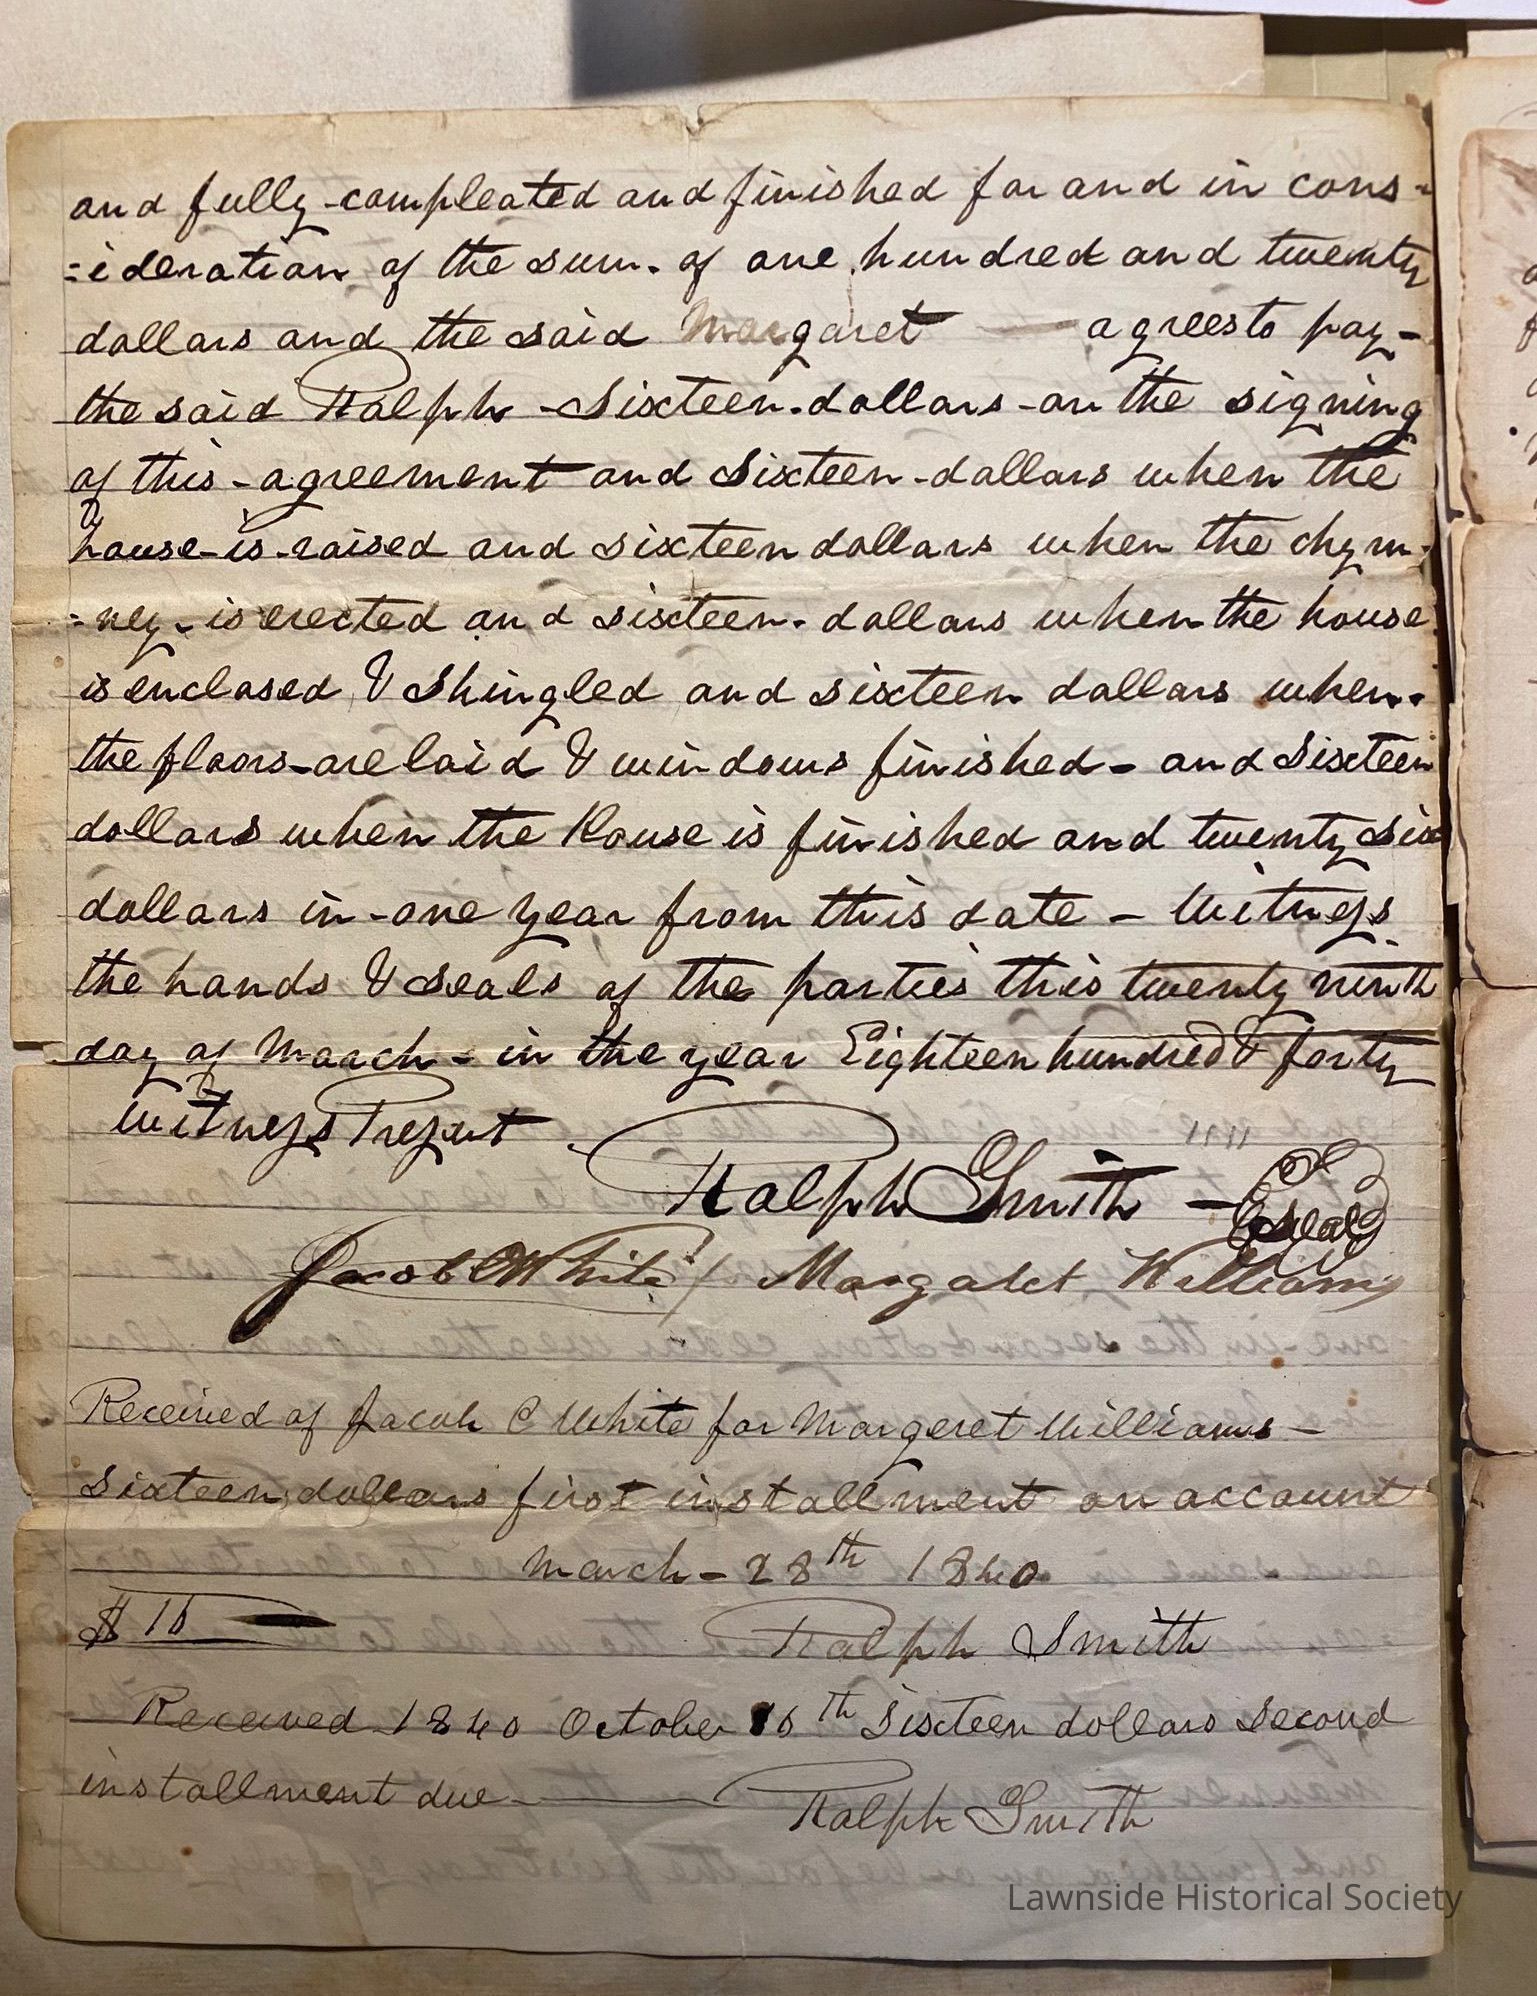 and fully compleated and finished for and in cons-
=ideration of the sum. of one hundred and twenty
dollars and the said Margaret — agrees to pay-
the said Ralph - Sixteen. dollars - on the signing
of this - agreement and Sixteen - dollars when the
house - is - raised and sixteen dollars when the chym-
=ney - is erected and sixteen. dollars when the house
is enclosed & Shingled and sixteen dollars when.
the floors - are laid & windows finished - and Sixteen
dollars when the House is finished and twenty six
dollars in - one year from this date - Witness
the hands & seals of the parties this twenty ninth
day of March - in the year Eighteen hundred & forty
Witness Present
Ralph Smith - Seal
Jacob C White / Margaret Williams
Received of Jacob C White for Margeret Williams -
Sixteen dollars first installment on account
March - 28th 1840
$16
Ralph Smith
Received 1840 October 16th Sixteen dollars second
installment due
Ralph Smith
Lawnside Historical Society